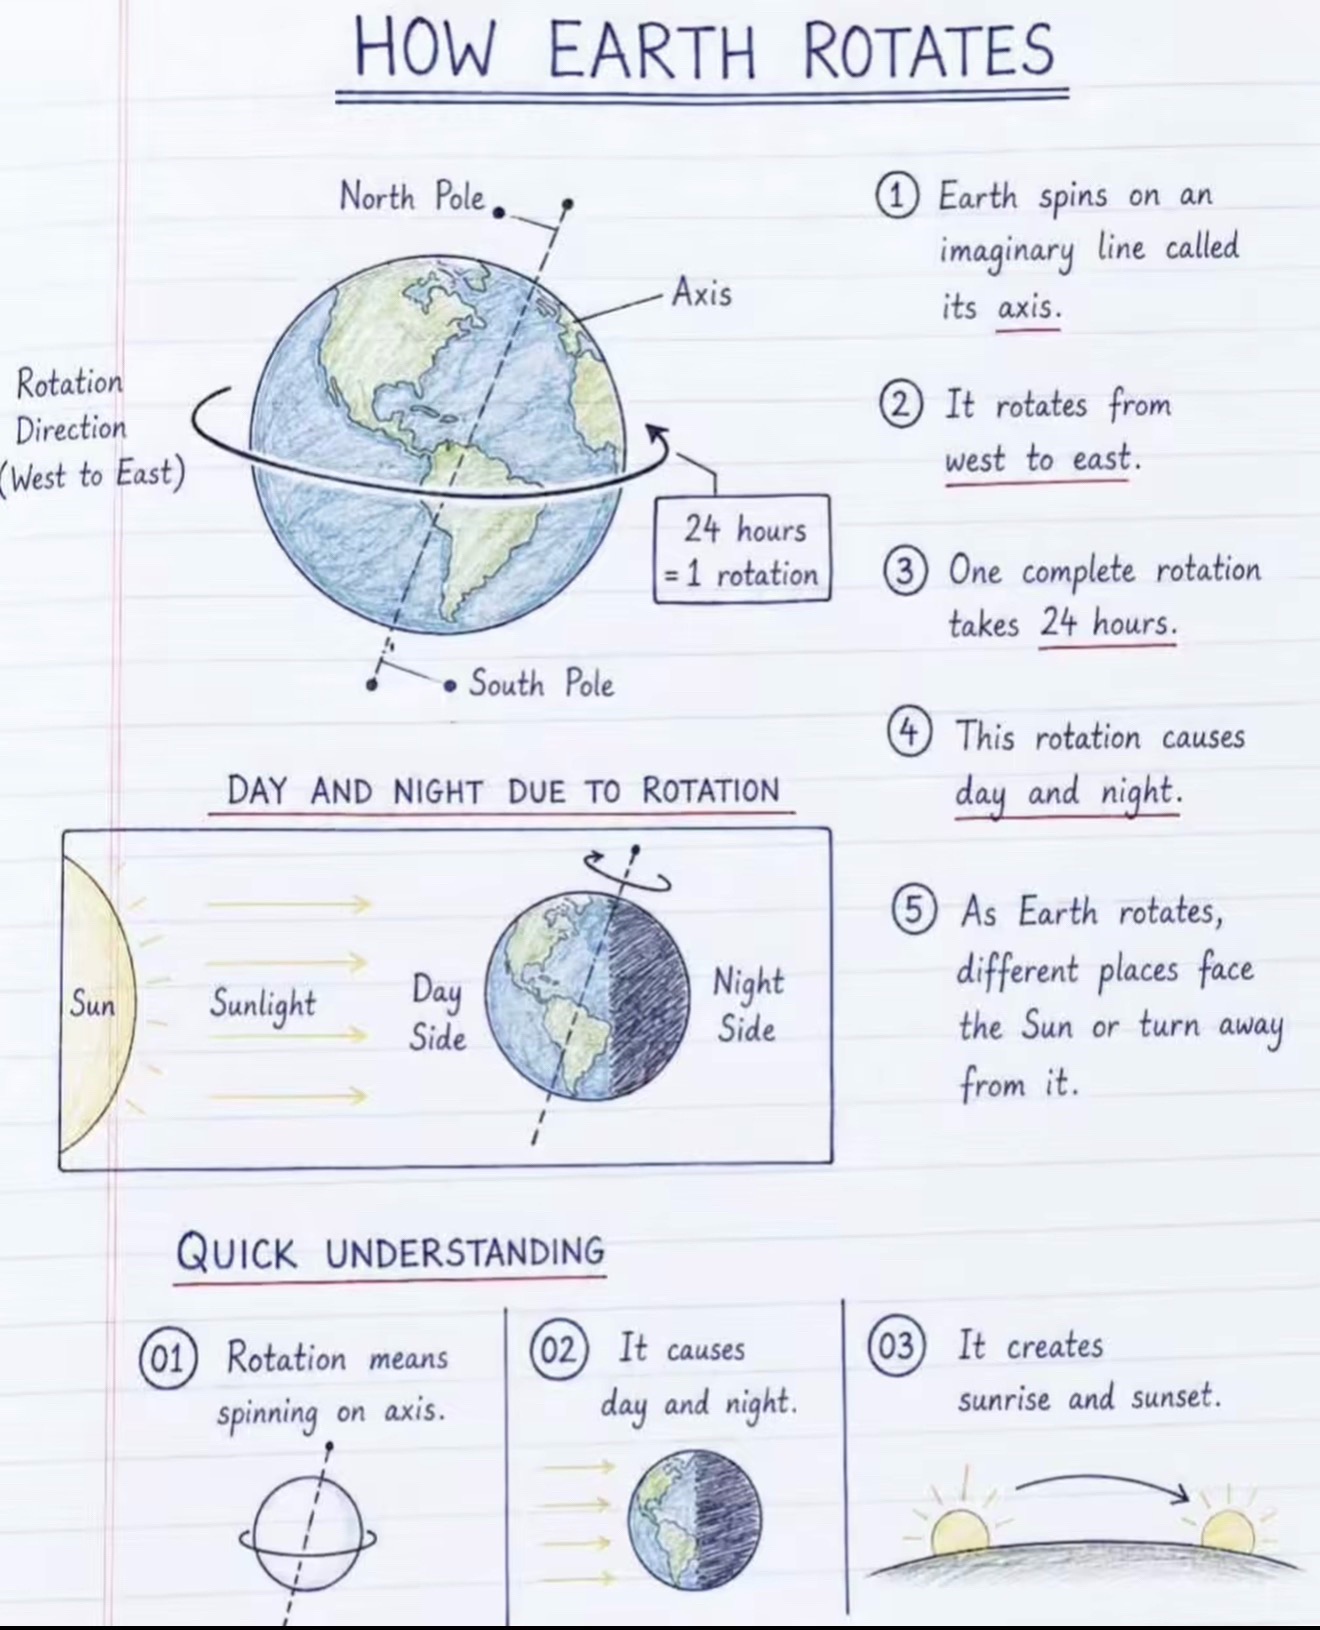 HOW EARTH ROTATES
North Pole
Axis
Rotation
Direction
(West to East)
24 hours
= 1 rotation
South Pole
1 Earth spins on an
imaginary line called
its axis.
2 It rotates from
west to east.
3 One complete rotation
takes 24 hours.
4 This rotation causes
day and night.
5 As Earth rotates,
different places face
the Sun or turn away
from it.
DAY AND NIGHT DUE TO ROTATION
Sun
Sunlight
Day
Side
Night
Side
QUICK UNDERSTANDING
01 Rotation means
spinning on axis.
02 It causes
day and night.
03 It creates
sunrise and sunset.